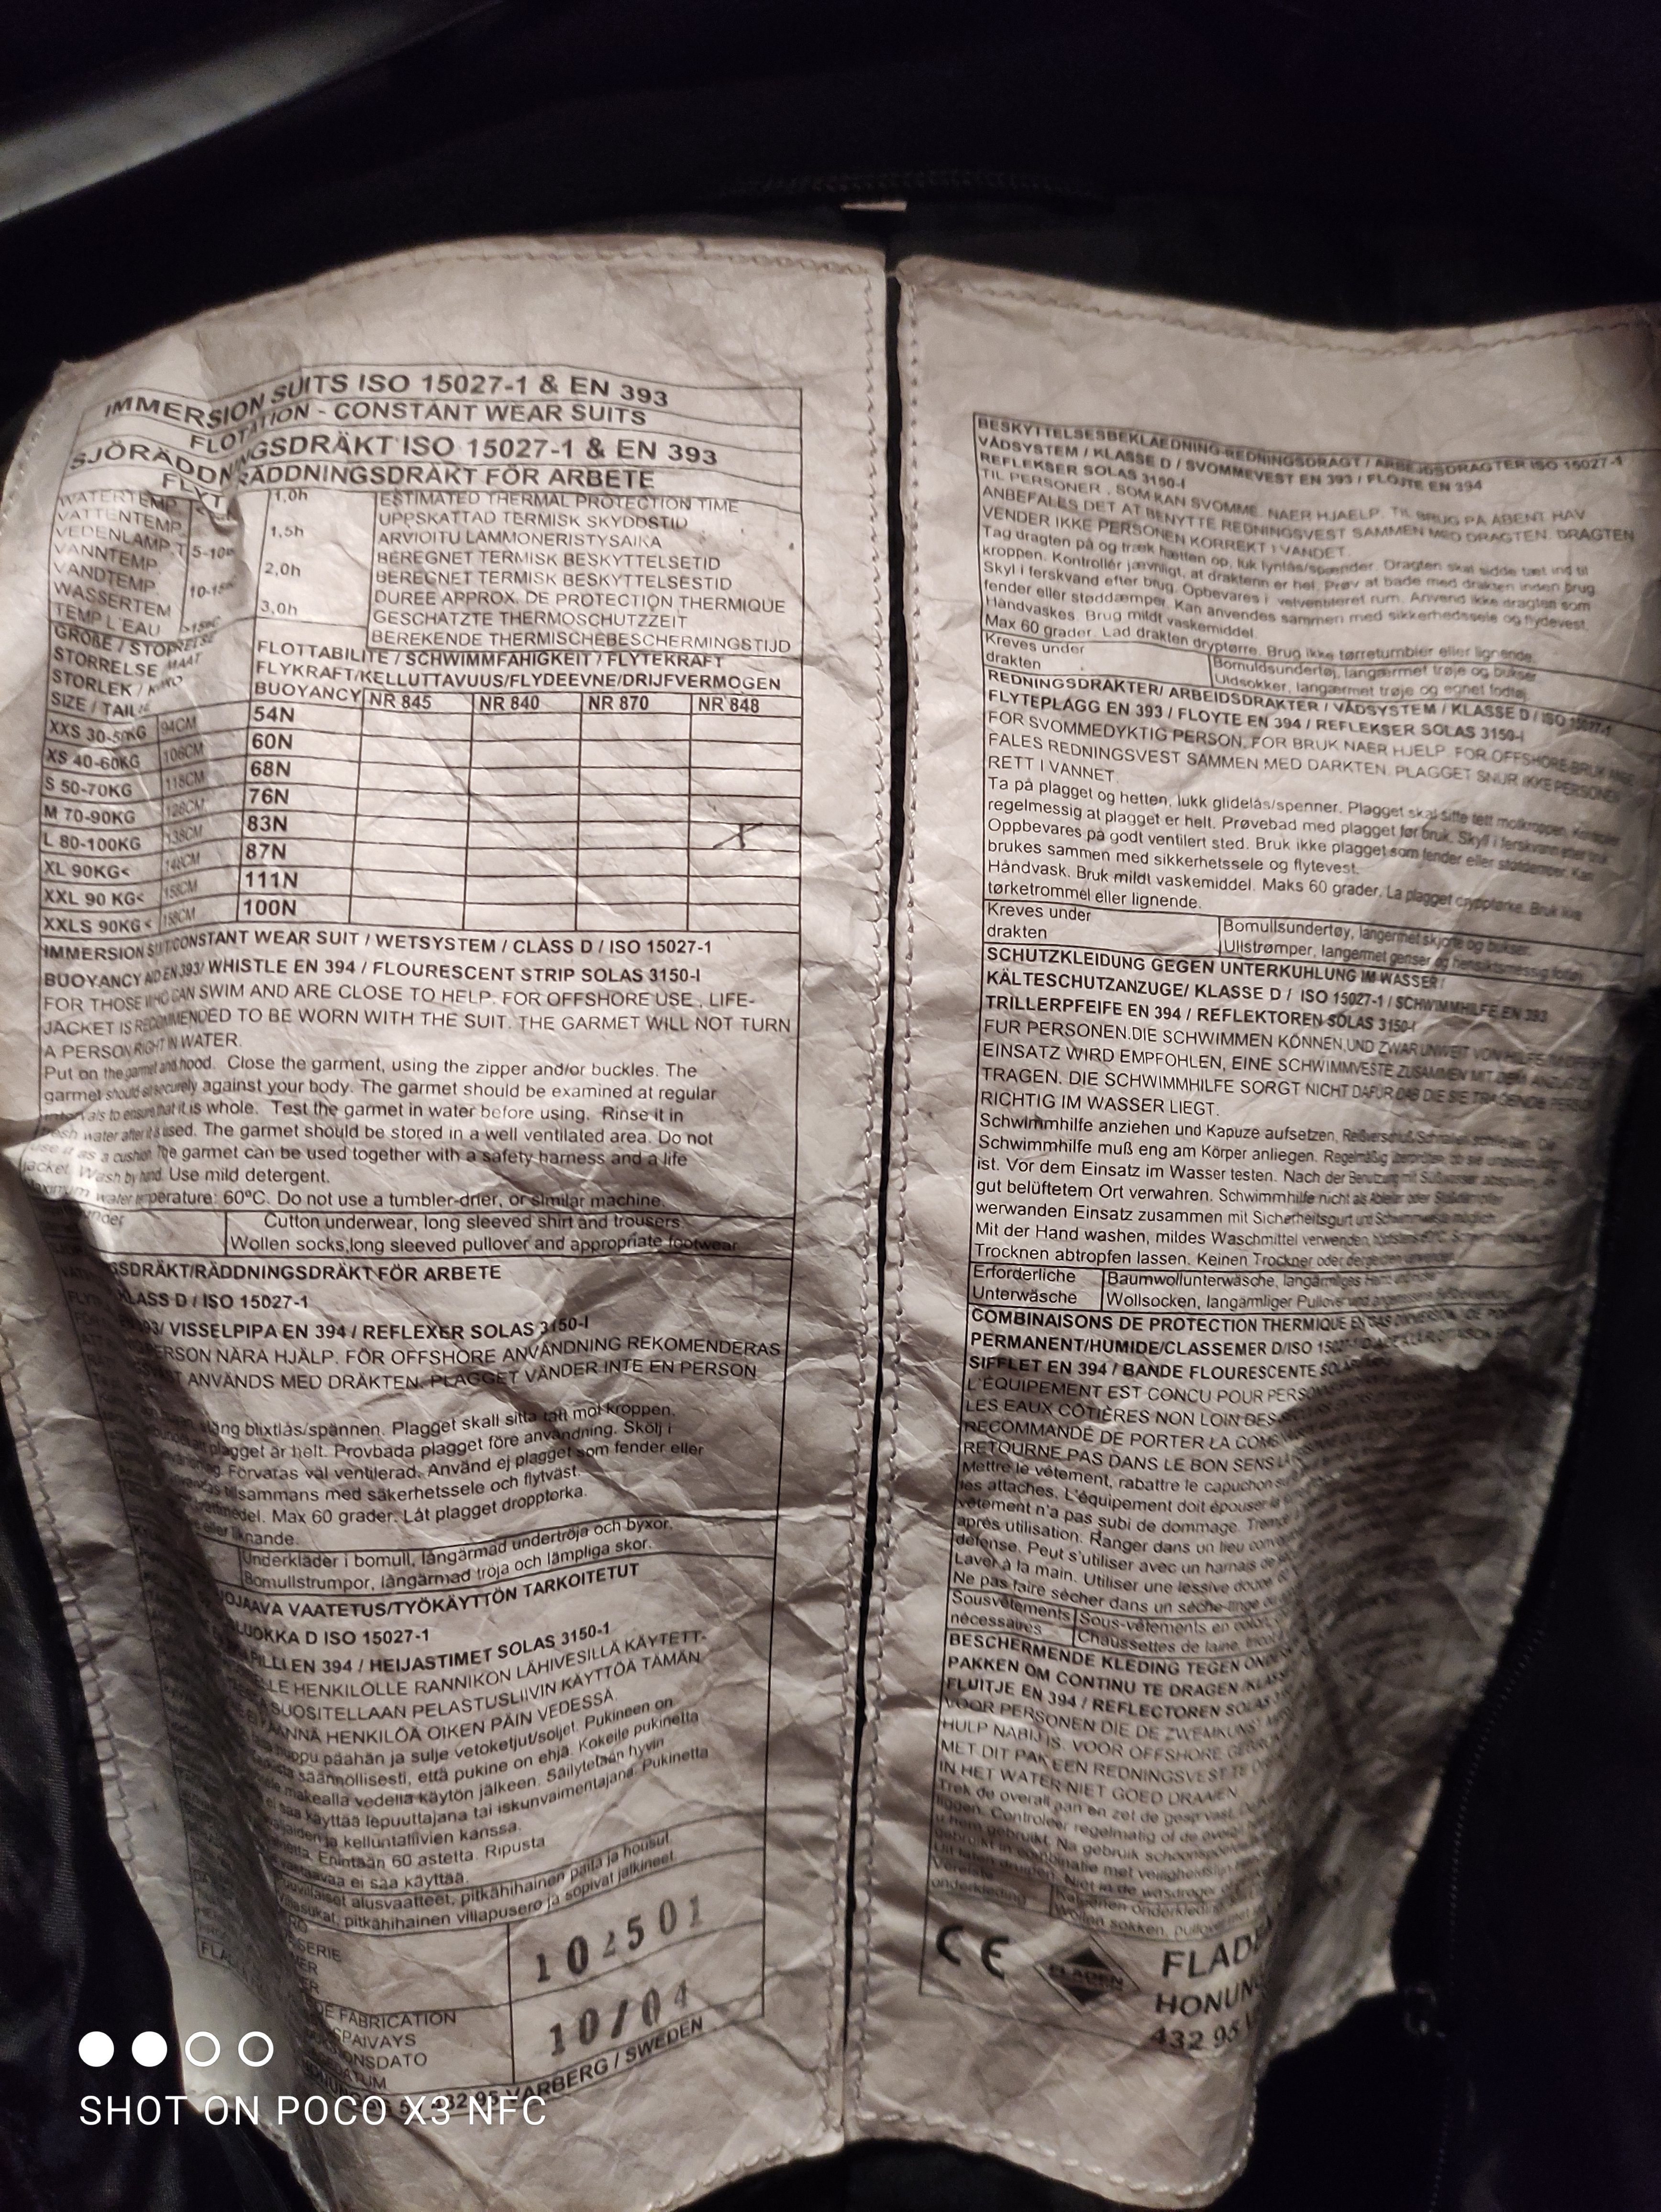 IMMERSION SUITS ISO 15027-1 & EN 393
FLOTATION - CONSTANT WEAR SUITS
SJÖRÄDDNINGSDRÄKT ISO 15027-1 & EN 393
FLYTRÄDDNINGSDRÄKT FÖR ARBETE
WATERTEMP 1,0h ESTIMATED THERMAL PROTECTION TIME
VATTENTEMP UPPSKATTAD TERMISK SKYDDSTID
VEDENLÄMP.T 5-10 1,5h ARVIOITU LAMMONERISTYSAIKA
VANNTEMP BEREGNET TERMISK BESKYTTELSETID
VANDTEMP 10-15 2,0h BEREGNET TERMISK BESKYTTELSESTID
WASSERTEM DUREE APPROX. DE PROTECTION THERMIQUE
TEMP L'EAU >15 3,0h GESCHATZTE THERMOSCHUTZZEIT
BEREKENDE THERMISCHEBESCHERMINGSTIJD
GRÖBE / STOPRELSE FLOTTABILITE / SCHWIMMFAHIGKEIT / FLYTEKRAFT
STORRELSE MAAT FLYKRAFT/KELLUTTAVUUS/FLYDEEVNE/DRIJFVERMOGEN
STORLEK /
SIZE / BUOYANCY NR 845 NR 840 NR 870 NR 848
XXS 30-50KG 94CM 54N
XS 40-60KG 106CM 60N
S 50-70KG 118CM 68N
M 70-90KG 128CM 76N
L 80-100KG 138CM 83N X
XL 90KG< 148CM 87N
XXL 90 KG< 158CM 111N
XXLS 90KG< 158CM 100N
IMMERSION SUIT/CONSTANT WEAR SUIT / WETSYSTEM / CLASS D / ISO 15027-1
BUOYANCY AID EN 393/ WHISTLE EN 394 / FLOURESCENT STRIP SOLAS 3150-I
FOR THOSE WHO CAN SWIM AND ARE CLOSE TO HELP. FOR OFFSHORE USE, LIFE-
JACKET IS RECOMMENDED TO BE WORN WITH THE SUIT. THE GARMET WILL NOT TURN
A PERSON RIGHT IN WATER.
Put on the garmet and hood. Close the garment, using the zipper and/or buckles. The
garmet should sit securely against your body. The garmet should be examined at regular
to ensure that it is whole. Test the garmet in water before using. Rinse it in
fresh water after it is used. The garmet should be stored in a well ventilated area. Do not
use it as a cushion. The garmet can be used together with a safety harness and a life
jacket. Wash by hand. Use mild detergent.
Maximum water temperature: 60ºC. Do not use a tumbler-drier, or similar machine.
under Cutton underwear, long sleeved shirt and trousers.
Wollen socks,long sleeved pullover and appropriate footwear
GSDRÄKT/RÄDDNINGSDRÄKT FÖR ARBETE
KLASS D / ISO 15027-1
393/ VISSELPIPA EN 394 / REFLEXER SOLAS 3150-I
PERSON NÄRA HJÄLP. FÖR OFFSHORE ANVÄNDNING REKOMENDERAS
ANVÄNDS MED DRÄKTEN. PLAGGET VÄNDER INTE EN PERSON
stäng blixtlås/spännen. Plagget skall sitta tätt mot kroppen.
plagget är helt. Provbada plagget före användning. Skölj i
Förvaras väl ventilerad. Använd ej plagget som fender eller
tillsammans med säkerhetssele och flytväst.
Max 60 grader. Låt plagget dropptorka.
eller liknande.
Underkläder i bomull, långärmad undertröja och byxor.
Bomullstrumpor, långärmad tröja och lämpliga skor.
OJAAVA VAATETUS/TYÖKÄYTTÖN TARKOITETUT
LUOKKA D ISO 15027-1
PILLI EN 394 / HEIJASTIMET SOLAS 3150-1
LE HENKILÖLLE RANNIKON LÄHIVESILLÄ KÄYTETT-
SUOSITELLAAN PELASTUSLIIVIN KÄYTTÖÄ TÄMÄN
ÄNNÄ HENKILÖÄ OIKEN PÄIN VEDESSÄ.
huppu päähän ja sulje vetoketjut/soljet. Pukineen on
säännöllisesti, että pukine on ehjä. Kokeile pukinetta
makealla vedellä käytön jälkeen. Säilytetään hyvin
ei saa käyttää lepuuttajana tai iskunvaimentajana. Pukinetta
ja kelluntaliivien kanssa.
Enintään 60 astetta. Ripusta
ei saa käyttää.
Puuvillaiset alusvaatteet, pitkähihainen paita ja housut.
Villasukat, pitkähihainen villapusero ja sopivat jalkineet.
SERIE 102501
DE FABRICATION 10/04
SPAIVAYS
ONSDATO
DATUM
432 95 VARBERG / SWEDEN
BESKYTTELSESBEKLAEDNING-REDNINGSDRAGT / ARBEJDSDRAGTER ISO 15027-1
VÅDSYSTEM / KLASSE D / SVOMMEVEST EN 393 / FLOJTE EN 394
REFLEKSER SOLAS 3150-I
TIL PERSONER , SOM KAN SVOMME. NAER HJAELP. TIL BRUG PÅ ÅBENT HAV
ANBEFALES DET AT BENYTTE REDNINGSVEST SAMMEN MED DRAGTEN. DRAGTEN
VENDER IKKE PERSONEN KORREKT I VANDET.
Tag dragten på og træk hætten op, luk lynlås/spænder. Dragten skal sidde tæt ind til
kroppen. Kontrollér jævnligt, at draktenn er hel. Prøv at bade med drakten inden brug.
Skyl i ferskvand efter brug. Opbevares i velventileret rum. Anvend ikke dragten som
fender eller støddæmper. Kan anvendes sammen med sikkerhedssele og flydevest.
Håndvaskes. Brug mildt vaskemiddel.
Max 60 grader. Lad drakten dryptørre. Brug ikke tørretumbler eller lignende.
Kreves under Bomuldsundertøj, langærmet trøje og bukser.
drakten Uldsokker, langærmet trøje og egnet fodtøj.
REDNINGSDRAKTER/ ARBEIDSDRAKTER / VÅDSYSTEM / KLASSE D / ISO 15027-1
FLYTEPLAGG EN 393 / FLOYTE EN 394 / REFLEKSER SOLAS 3150-I
FOR SVOMMEDYKTIG PERSON, FOR BRUK NAER HJELP. FOR OFFSHORE BRUK ANBE
FALES REDNINGSVEST SAMMEN MED DARKTEN. PLAGGET SNUR IKKE PERSONEN
RETT I VANNET.
Ta på plagget og hetten, lukk glidelås/spenner. Plagget skal sitte tett mot kroppen. Kontroller
regelmessig at plagget er helt. Prøvebad med plagget før bruk. Skyll i ferskvann etter bruk.
Oppbevares på godt ventilert sted. Bruk ikke plagget som fender eller støtdemper. Kan
brukes sammen med sikkerhetssele og flytevest.
Håndvask. Bruk mildt vaskemiddel. Maks 60 grader. La plagget drypptørke. Bruk ikke
tørketrommel eller lignende.
Kreves under Bomullsundertøy, langermet skjorte og bukser.
drakten Ullstrømper, langermet genser og hensiktsmessig fottøy.
SCHUTZKLEIDUNG GEGEN UNTERKUHLUNG IM WASSER /
KÄLTESCHUTZANZUGE/ KLASSE D / ISO 15027-1 / SCHWIMMHILFE EN 393
TRILLERPFEIFE EN 394 / REFLEKTOREN SOLAS 3150-I
FUR PERSONEN.DIE SCHWIMMEN KÖNNEN,UND ZWAR UNWEIT VON HILFE.
EINSATZ WIRD EMPFOHLEN, EINE SCHWIMMVESTE ZUSAMMEN MIT DEM ANZUG ZU
TRAGEN. DIE SCHWIMMHILFE SORGT NICHT DAFÜR DAß DIE SIE TRAGENDE PERSON
RICHTIG IM WASSER LIEGT.
Schwimmhilfe anziehen und Kapuze aufsetzen, Reißverschluß/Schnallen schließen. Die
Schwimmhilfe muß eng am Körper anliegen. Regelmäßig überprüfen, ob sie unbeschädigt
ist. Vor dem Einsatz im Wasser testen. Nach der Benutzung mit Süßwasser abspülen. An
gut belüftetem Ort verwahren. Schwimmhilfe nicht als Ableiter oder
werwanden Einsatz zusammen mit Sicherheitsgurt und Schwimmweste möglich.
Mit der Hand washen, mildes Waschmittel verwenden,
Trocknen abtropfen lassen. Keinen Trockner oder dergleichen verwenden.
Erforderliche Baumwollunterwäsche, langärmliges
Unterwäsche Wollsocken, langärmliger Pullover und
COMBINAISONS DE PROTECTION THERMIQUE EN CAS D'IMMERSION
PERMANENT/HUMIDE/CLASSEMER D/ISO 15027-1
SIFFLET EN 394 / BANDE FLOURESCENTE SOLAS
L'ÉQUIPEMENT EST CONCU POUR
LES EAUX CÔTIÈRES NON LOIN DES
RECOMMANDÉ DE PORTER LA
RETOURNE PAS DANS LE BON SENS LA
Mettre le vêtement, rabattre le capuchon
les attaches. L'équipement doit épouser
vêtement n'a pas subi de dommage.
après utilisation. Ranger dans un lieu
défense. Peut s'utiliser avec un harnais de
Laver à la main. Utiliser une lessive douce
Ne pas faire sècher dans un sèche-linge
Sousvêtements Sous-vêtements en
nécessaires Chaussettes de laine,
BESCHERMENDE KLEDING TEGEN
PAKKEN OM CONTINU TE DRAGEN /KLASSE
FLUITJE EN 394 / REFLECTOREN SOLAS
VOOR PERSONEN DIE DE ZWEMKUNST
HULP NABIJ IS. VOOR OFFSHORE
MET DIT PAK EEN REDNINGSVEST TE
IN HET WATER NIET GOED DRAAIEN.
Trek de overall aan en zet de gesp vast.
liggen. Controleer regelmatig of de overall
u hem gebruikt. Na gebruik schoonspoelen
gebruikt in combinatie met veiligheidslijn
Uit laten druipen. Niet in de wasdroger
Vereiste Katoenen onderkleding
onderkleding Wollen sokken, pullover met
CE FLADEN FLADE
HONUN
432 95